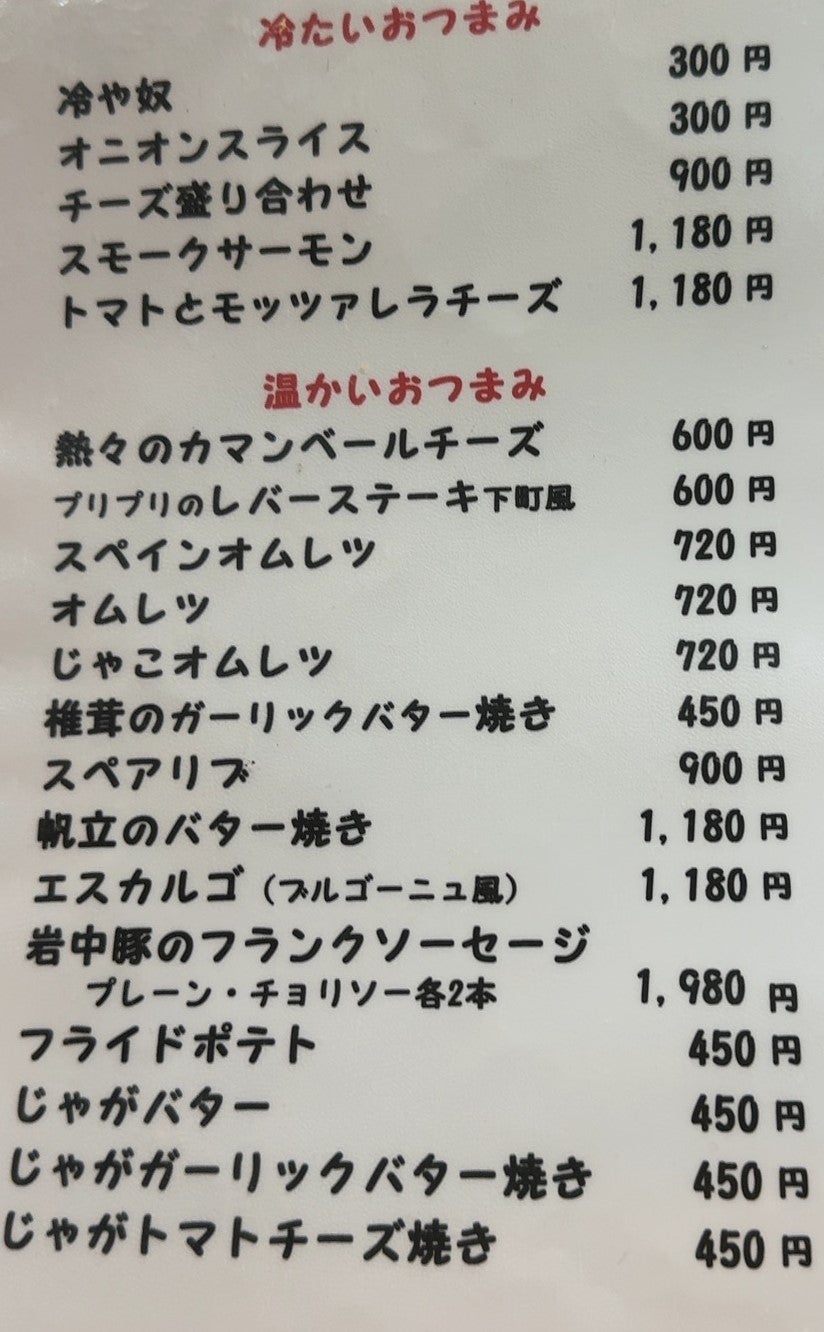 冷たいおつまみ
冷や奴 300 円
オニオンスライス 300 円
チーズ盛り合わせ 900 円
スモークサーモン 1,180 円
トマトとモッツァレラチーズ 1,180 円
温かいおつまみ
熱々のカマンベールチーズ 600 円
プリプリのレバーステーキ下町風 600 円
スペインオムレツ 720 円
オムレツ 720 円
じゃこオムレツ 720 円
椎茸のガーリックバター焼き 450 円
スペアリブ 900 円
帆立のバター焼き 1,180 円
エスカルゴ（ブルゴーニュ風） 1,180 円
岩中豚のフランクソーセージ
プレーン・チョリソー各2本 1,980 円
フライドポテト 450 円
じゃがバター 450 円
じゃがガーリックバター焼き 450 円
じゃがトマトチーズ焼き 450 円